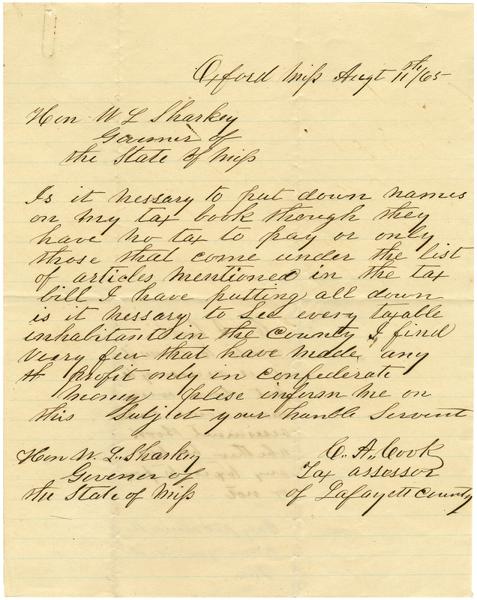 Oxford Miss Augt 11th/65
Hon W L Sharkey
Governer of
the State of Miss
Is it nessary to put down names
on my tax book though they
have no tax to pay or only
those that come under the list
of articles mentioned in the tax
bill I have putting all down
is it nessary to see every taxable
inhabitants in the County I find
very few that have made any
profit only in confederate
money plese inform me on
this Subject your humble Servent
C. A. Cook
Hon W. L. Sharkey
Tax assessor
Goverer of
of Lafayett County
the State of Miss